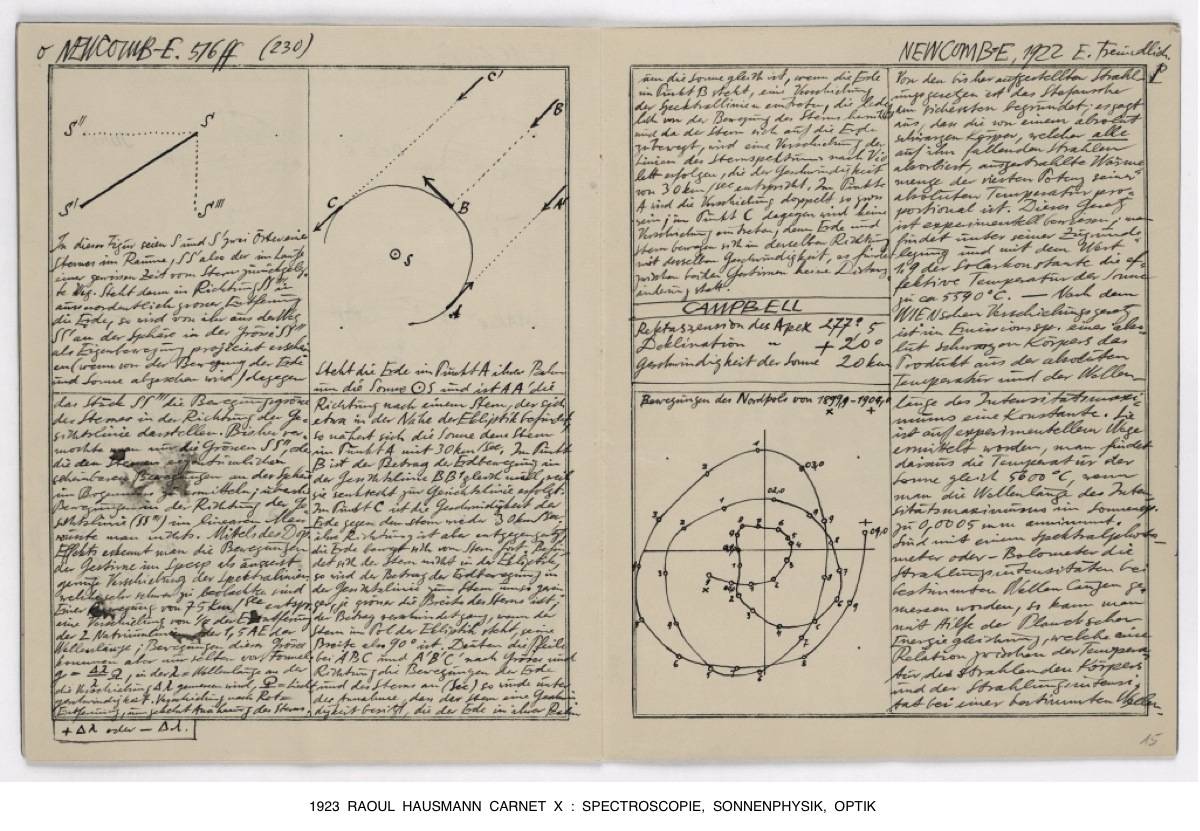 o NEWCOMB-E. 516 ff (230)
S''
S
S'
S'''
C'
B'
A'
C
B
S
A
In dieser Figur seien S und S' zwei Örter eines
Sternes im Raume, SS' also der im Laufe
einer gewissen Zeit vom Stern zurückgeleg-
te Weg. Steht dann in Richtung SS''' in
ausserordentlich grosser Entfernung
die Erde, so wird von ihr aus der Weg
SS' an der Sphäre in der Grösse SS''
als Eigenbewegung projeciert erschei-
nen (wenn von der Bewegung der Erde
und Sonne abgesehen wird) dagegen
das Stück SS''' die Bewegungsgrösse
des Sternes in der Richtung der Ge-
sichtslinie darstellen. Bisher ver-
mochte man nur die Grössen SS'', oder
die den Sternen eigentümlichen
scheinbaren Bewegungen an der Sphäre
im Bogenmass zu ermitteln, über die
Bewegungen in der Richtung der Ge-
sichtslinie (SS''') im linearen Mass
wusste man nichts. Mittels des Dop.
Effekts erkennt man die Bewegungen
der Gestirne im Spesp als äusserst
geringe Verschiebung der Spectrallinien,
welche sehr schwer zu beobachten sind
Einer Bewegung von 75 km/Sec entspr.
eine Verschiebung von 1/4 der Entfernung
der 2 Natriumlinien, oder 1,5 AE der
Wellenlänge; Bewegungen dieser Grösse
kommen aber nur selten vor. Formel:
die Verschiebung Δλ gemessen wird,
geschwindigkeit. Verschiebung nach Rot =
Entfernung, umgekehrt Annäherung des Sterns.
+ Δλ oder − Δλ.
Steht die Erde im Punkt A ihrer Bahn
um die Sonne ⊙S und ist AA' die
Richtung nach einem Stern, der sich
etwa in der Nähe der Ekliptik befindet,
so nähert sich die Sonne dem Stern
im Punkt A mit 30 km/Sec, Im Punkt
B ist der Betrag der Erdbewegung in
der Gesichtslinie BB' gleich null, weil
sie senkrecht zur Gesichtslinie erfolgt.
Im Punkt C ist die Geschwindigkeit der
Erde gegen den Stern wieder 30 km/Sec,
ihre Richtung ist aber entgegengesetzt,
die Erde bewegt sich vom Stern fort. Befin-
det sich der Stern nicht in der Ekliptik,
so wird der Betrag der Erdbewegung in
der Gesichtslinie zum Stern umso gerin-
ger, je grösser die Breite des Sterns ist,
der Betrag verschwindet ganz, wenn der
Stern im Pol der Ekliptik steht, seine
Breite also 90° ist. Deuten die Pfeile
bei A B C und A' B' C' nach Grösse und
Richtung die Bewegungen der Erde
und des Sterns an (Sec) so wird unter
der Annahme, dass der Stern eine Geschwin-
digkeit besitzt, die der Erde in ihrer Bahn
NEWCOMBE, 1922 E. Freundlich.
um die Sonne gleich ist, wenn die Erde
im Punkt B steht, eine Verschiebung
der Spektrallinien eintreten, die ledig-
lich von der Bewegung des Sterns herrührt
und da der Stern sich auf die Erde
zubewegt, wird eine Verschiebung der
Linien des Sternspektrums nach Vio-
lett erfolgen, die der Geschwindigkeit
von 30 km/sec entspricht. Im Punkte
A wird die Verschiebung doppelt so gross
sein, im Punkt C dagegen wird keine
Verschiebung eintreten, denn Erde und
Stern bewegen sich in derselben Richtung
mit derselben Geschwindigkeit, es findet
zwischen beiden Gestirnen keine Distanz-
änderung statt.
CAMPBELL
Rektaszension des Apex 277° 5
Deklination " + 20°
Geschwindigkeit der Sonne 20 km
Bewegungen des Nordpols von 1899,9 – 1904,0
x +
03,0
02,0
04,0
Von den bisher aufgestellten Strahl-
ungsgesetzen ist das Stefansche
am sichersten begründet; es sagt
aus, dass die von einem absolut
schwarzen Körper, welcher alle
auf ihn fallenden Strahlen
absorbiert, ausgestrahlte Wärme
menge der vierten Potenz seiner
absoluten Temperatur pro-
portional ist. Dieses Gesetz
ist experimentell bewiesen; man
findet unter seiner Zugrunde
legung und mit dem Wert
1,9 der Solarkonstante die ef-
fektive Temperatur der Sonne
zu ca 5590°C. — Nach dem
WIENschen Verschiebungsgesetz
ist im Emissionssp. eines abso-
lut schwarzen Körpers das
Produkt aus der absoluten
Temperatur und der Wellen-
länge des Intensitätsmaxi-
mums eine Konstante. Sie
ist auf experimentellem Wege
ermittelt worden, man findet
daraus die Temperatur der
Sonne gleich 5600°C, wenn
man die Wellenlänge des Inten-
sitätsmaximums im Sonnensp.
zu 0,0005 mm annimmt.
Sind mit einem Spektralphoto-
meter oder – Bolometer die
Strahlungsintensitäten bei
bestimmten Wellenlängen ge-
messen worden, so kann man
mit Hilfe der Planckschen
Energiegleichung, welche eine
Relation zwischen der Tempera-
tur des strahlenden Körpers
und der Strahlungsintensi-
tät bei einer bestimmten Wellen-
15
1923 RAOUL HAUSMANN CARNET X : SPECTROSCOPIE, SONNENPHYSIK, OPTIK